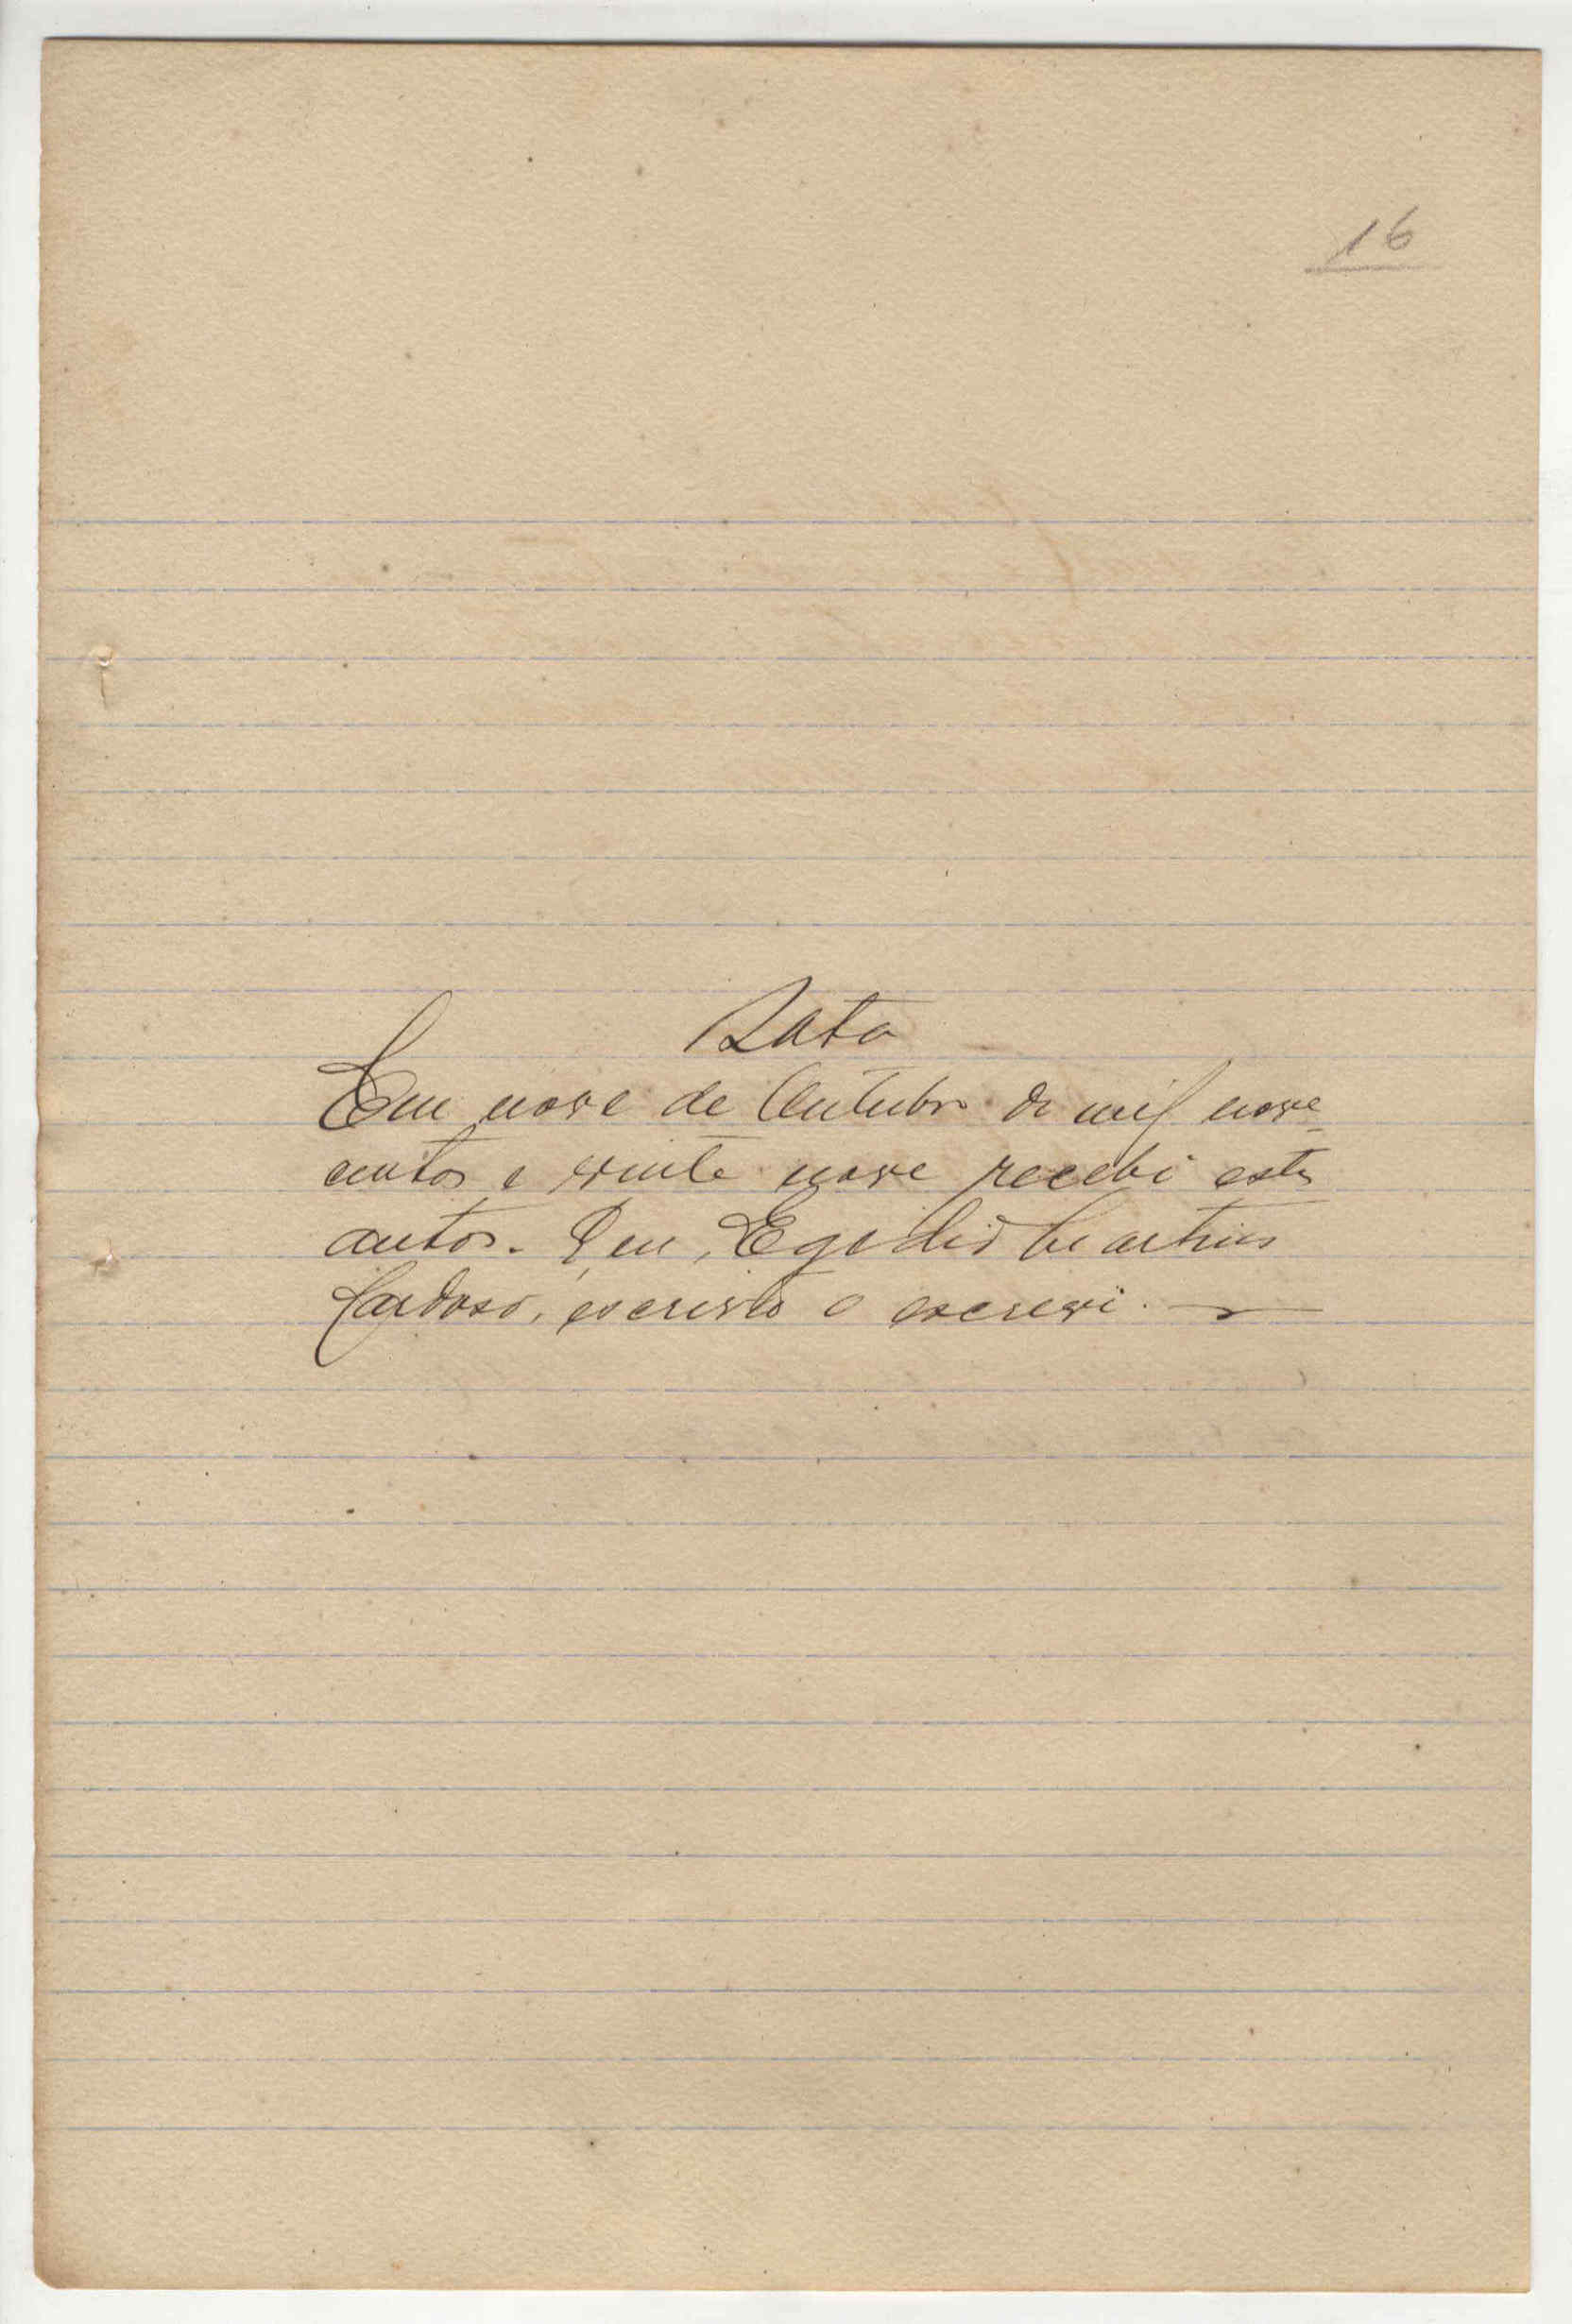 16
Data
Em nove de Outubro de mil nove-
centos e vinte nove recebi estes
autos. E, eu, Egidio Martins
Cardoso, escrivão o escrevi.